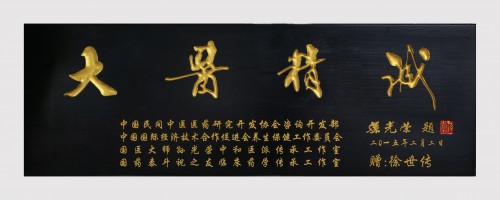 大医精诚
中国民间中医医药研究开发协会咨询开发部
中国国际经济技术合作促进会养生保健工作委员会
国医大师孙光荣中和医派传承工作室
国药泰斗祝之友临床药学传承工作室
孙光荣 题
二〇一五年二月二日
赠:徐世传